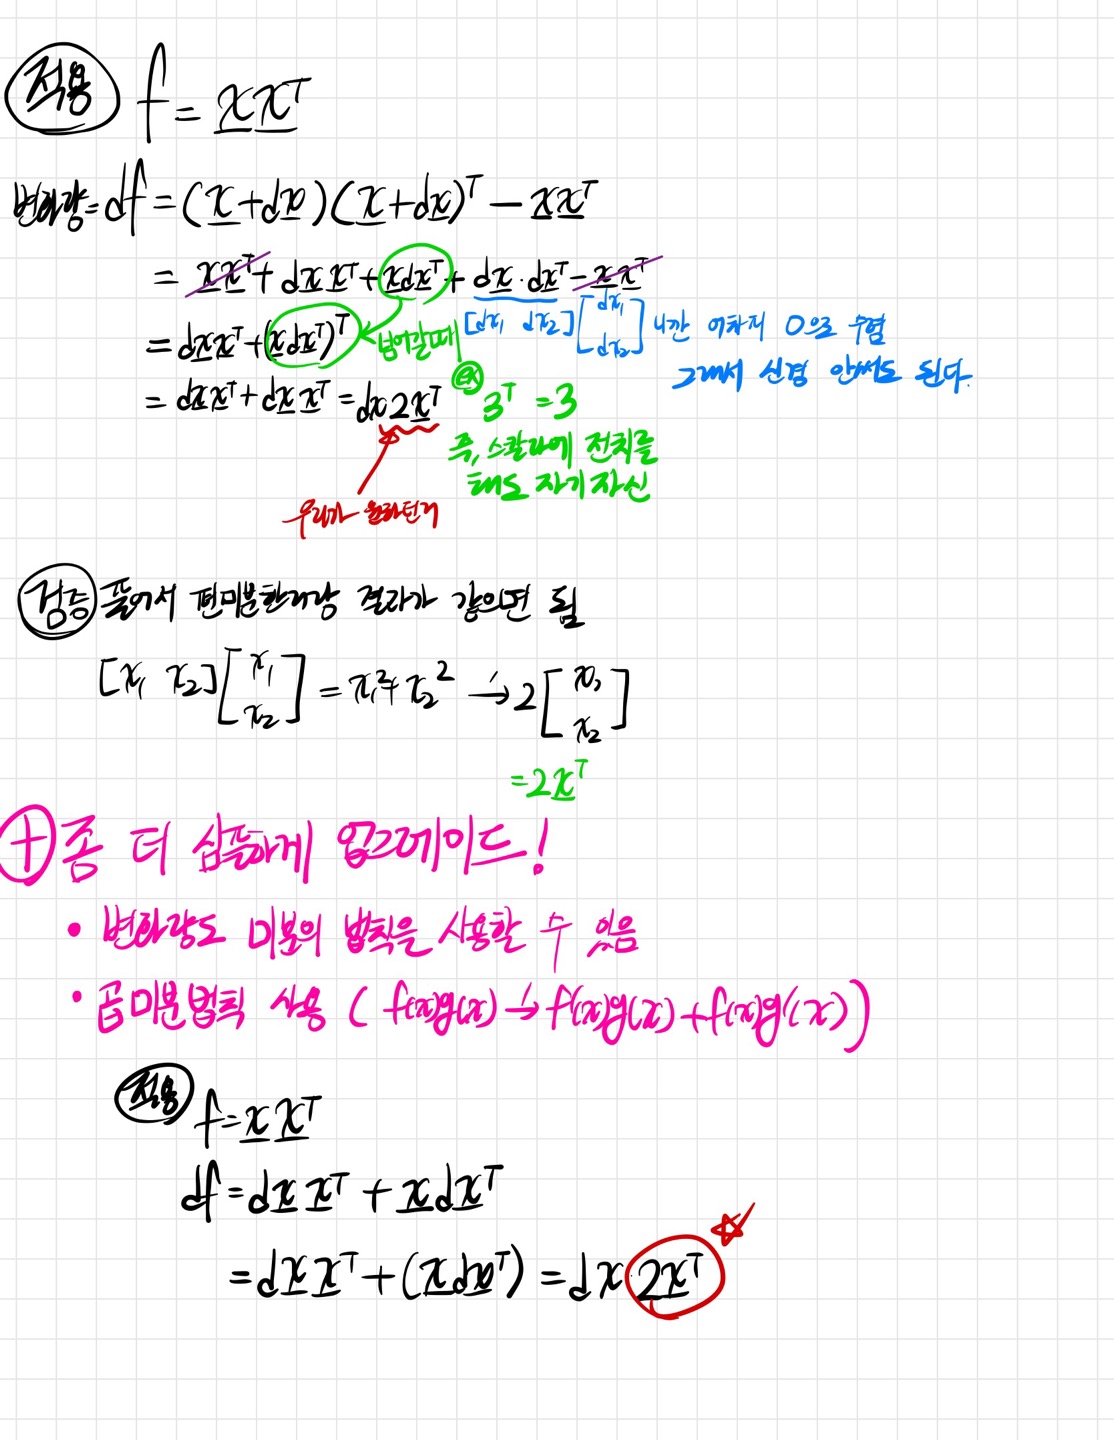 적용 f = x xᵀ
변화량 = df = (x+dx)(x+dx)ᵀ - x xᵀ
= x xᵀ + dx xᵀ + x dxᵀ + dx · dxᵀ - x xᵀ
[dx₁ dx₂] [dx₁ dx₂] 니깐 어차피 0으로 수렴
그래서 신경 안써도 된다.
= dx xᵀ + (x dxᵀ)ᵀ 넘어갈때
= dx xᵀ + dx xᵀ = dx 2xᵀ
ex 3ᵀ = 3
즉, 스칼라에 전치를
해도 자기 자신
우리가 원하던거
검증 풀어서 편미분한거랑 결과가 같으면 됨
[x₁ x₂] [x₁ x₂] = x₁² + x₂² → 2 [x₁ x₂]
= 2xᵀ
+ 좀 더 심플하게 업그레이드!
• 변화량도 미분의 법칙을 사용할 수 있음
• 곱미분법칙 사용 ( f(x)g(x) → f'(x)g(x) + f(x)g'(x) )
적용 f = x xᵀ
df = dx xᵀ + x dxᵀ
= dx xᵀ + (x dxᵀ) = dx 2xᵀ